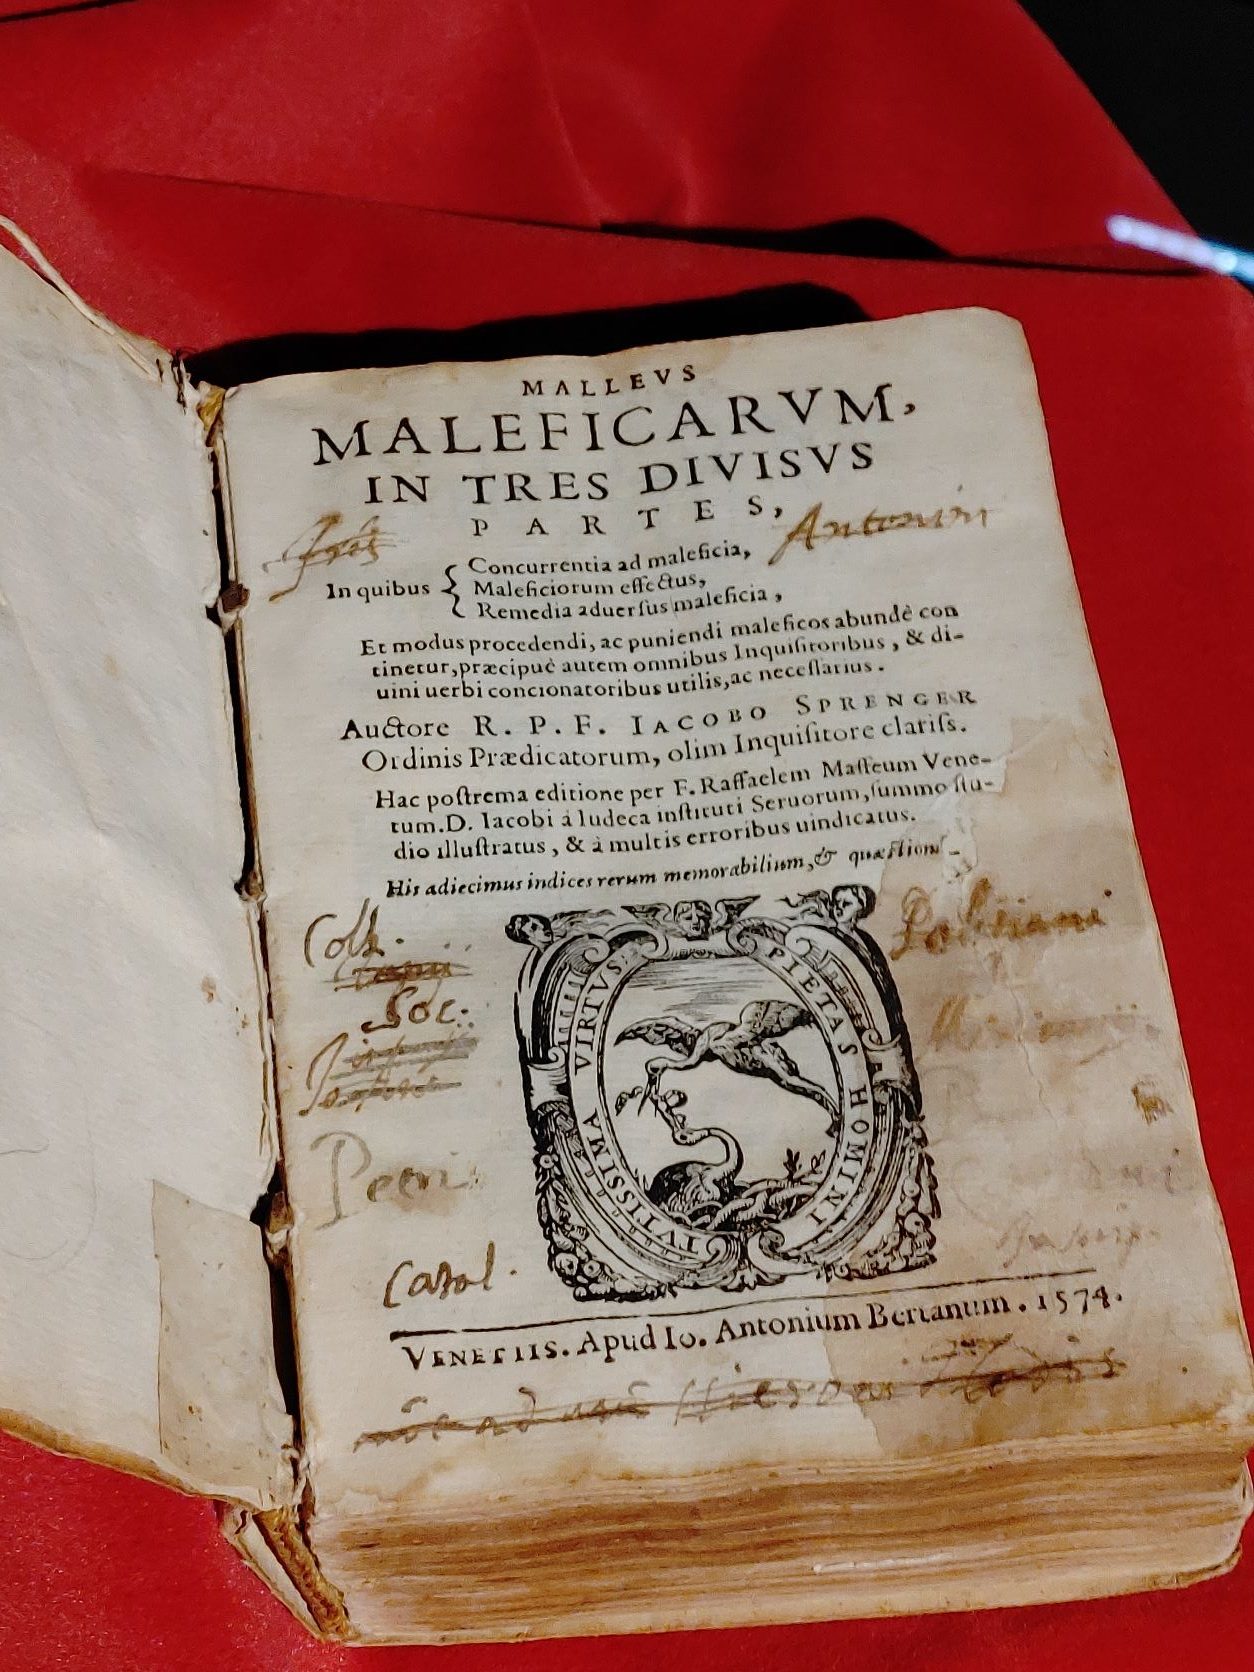 MALLEVS
MALEFICARVM,
IN TRES DIVISVS
PARTES,
Antonini
In quibus { Concurrentia ad maleficia,
Maleficiorum effectus,
Remedia aduerſus maleficia,
Et modus procedendi, ac puniendi maleficos abundè con
tinetur, præcipuè autem omnibus Inquiſitoribus, & di-
uini uerbi concionatoribus utilis, ac neceſſarius.
Auctore R. P. F. IACOBO SPRENGER
Ordinis Prædicatorum, olim Inquiſitore clariſs.
Hac poſtrema editione per F. Raffaelem Maffeum Vene-
tum. D. Iacobi à Iudeca inſtituti Seruorum, ſummo ſtu-
dio illuſtratus, & à multis erroribus uindicatus.
His adiecimus indices rerum memorabilium, & quæſtion-
Coll.
Soc:
Petri
Carol.
Politiani
VIRTVS
PIETAS HOMINI
TVTISSIMA
VENETIIS. Apud Io. Antonium Bertanum. 1574.